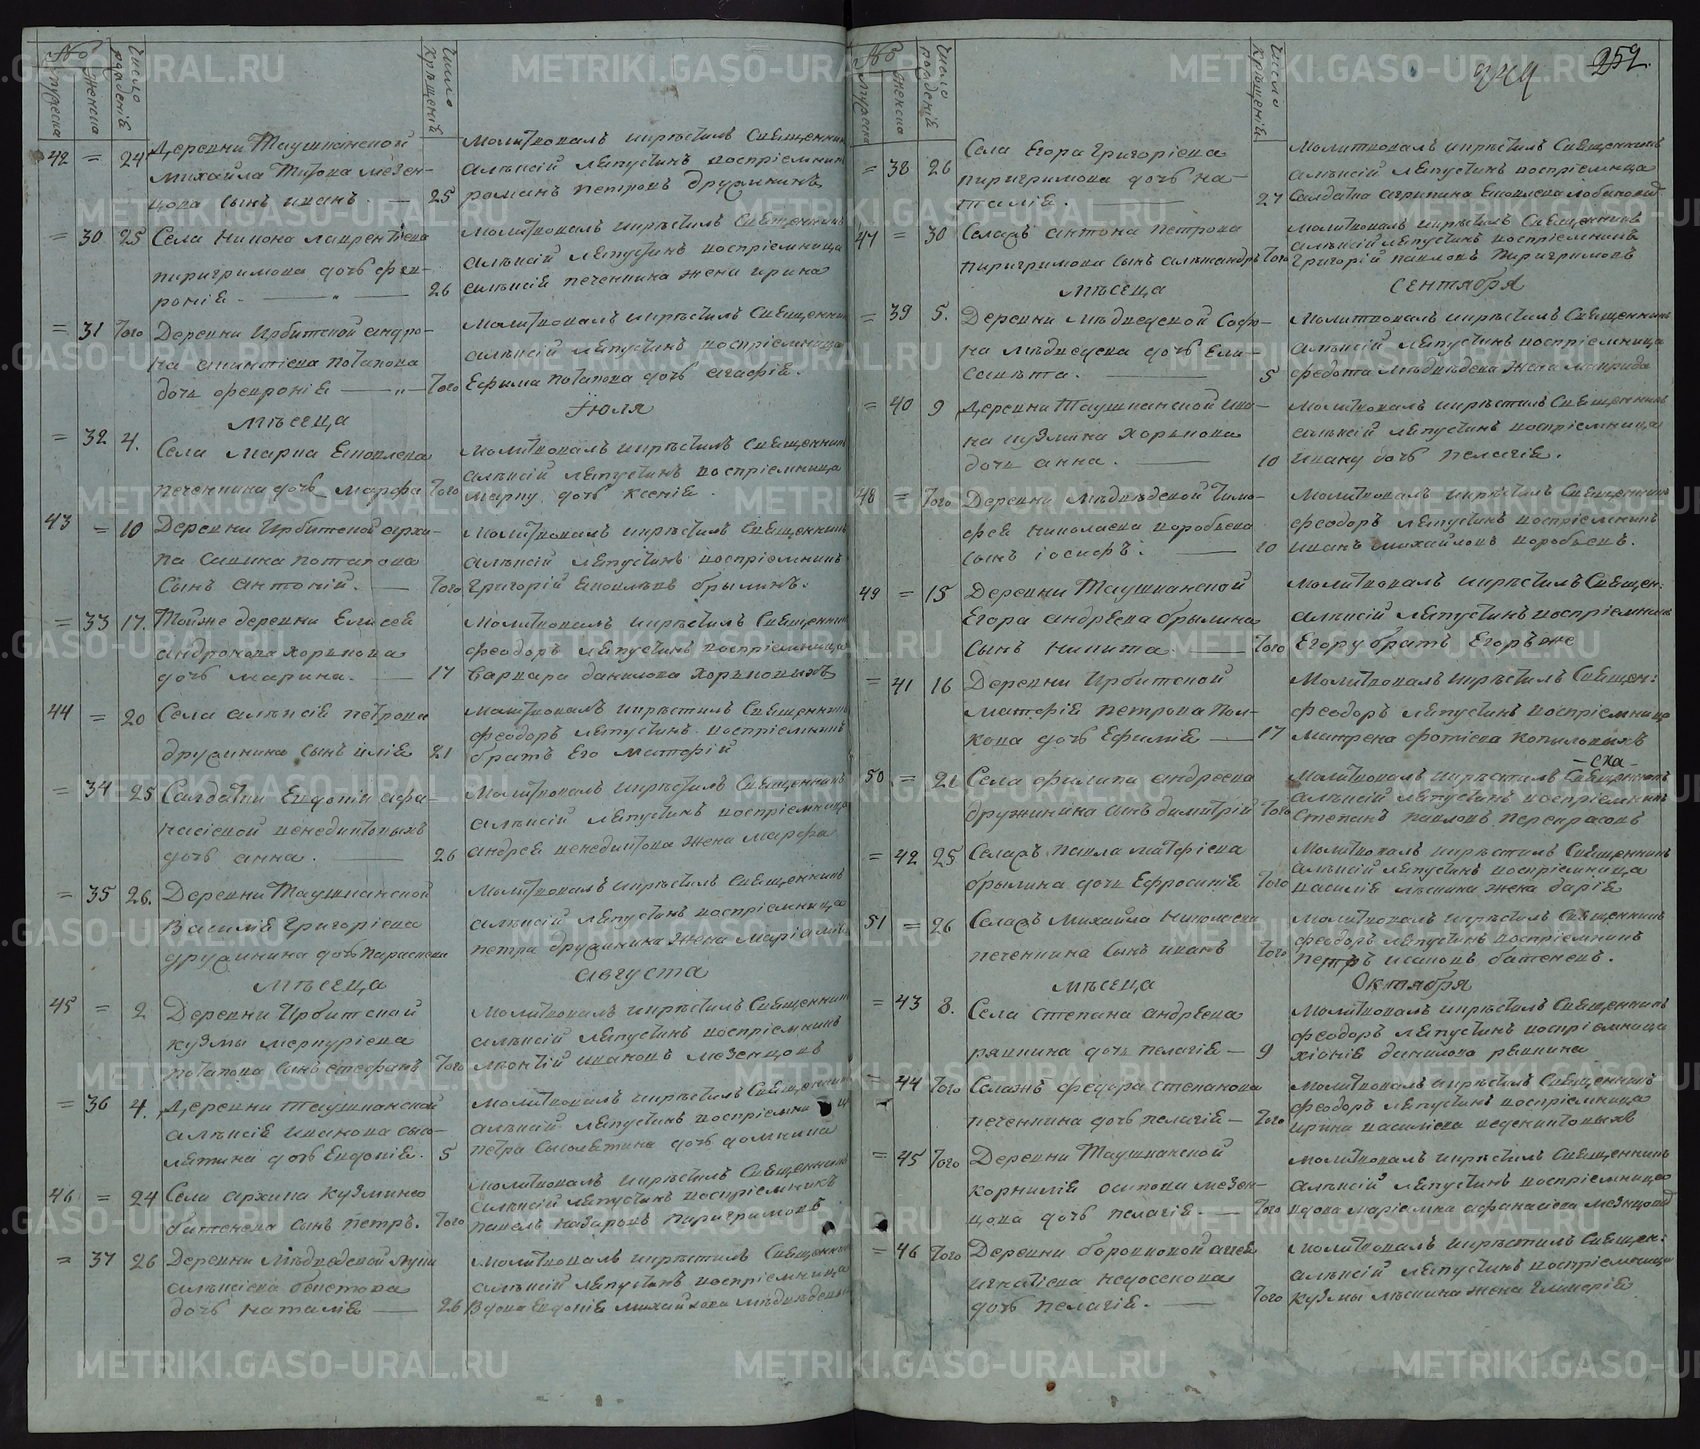 №
мужеска
женска
число рожденій
число крещеній
42 = 24 Деревни Таушканской
Михайла Титова Мезен-
цова сынъ Иванъ. — 25
Молитвовалъ и крѣстилъ Священникъ
Алѣксій Лѣпустинъ воспріемникъ
Романъ Петровъ Дружининъ
= 30 25 Села Никона Лаврентіева
Пиригримова дочь Фев-
роніѣ. — „ — 26
Молитвовалъ и крѣстилъ Священникъ
Алѣксій Лѣпустинъ воспріемница
Алѣксіѣ Печеркина жена Ирина
= 31 Того Деревни Ирбитской Андро-
на Потапова
дочь Февроніѣ — „ — Того
Молитвовалъ и крѣстилъ Священникъ
Алѣксій Лѣпустинъ воспріемница
Ефима Потапова дочь Агафіѣ.
Мѣсеца Іюля
= 32 4. Села Марка Иковлева
Печенкина дочь Марфа Того
Молитвовалъ и крѣстилъ Священникъ
Алѣксій Лѣпустинъ воспріемница
Марку дочь Ксеніѣ.
43 = 10 Деревни Ирбитской Архи-
па Савина Потапова
сынъ Антоній. — Того
Молитвовалъ и крѣстилъ Священникъ
Алѣксій Лѣпустинъ воспріемникъ
Григорій Иковлѣвъ Брылинъ.
= 33 17. Тойже деревни Елисей
Андронова Хорькова
дочь Марина. — 17
Молитвовалъ и крѣстилъ Священникъ
Феодоръ Лѣпустинъ воспріемница
Варвара Данилова Хорьковыхъ
44 = 20 Села Алѣксіѣ Петрова
Дружинина сынъ Иліѣ 21
Молитвовалъ и крѣстилъ Священникъ
Феодоръ Лѣпустинъ воспріемникъ
братъ Его Матфій
= 34 25 Салдатки Евдокіи Афа-
насіевой Бенедиктовыхъ
дочь Анна. — 26
Молитвовалъ и крѣстилъ Священникъ
Алѣксій Лѣпустинъ воспріемница
Андрея Бенедиктова жена Марфа
= 35 26. Деревни Таушканской
Василіѣ Григоріева
Дружинина дочь Параскева
Молитвовалъ и крѣстилъ Священникъ
Алѣксій Лѣпустинъ воспріемница
Петра Дружинина жена Маріамна
Мѣсеца Августа
45 = 2 Деревни Ирбитской
Кузмы Меркуріева
Потапова сынъ Стефанъ Того
Молитвовалъ и крѣстилъ Священникъ
Алѣксій Лѣпустинъ воспріемникъ
Лѣонтій Ивановъ Мезенцовъ
= 36 4. Деревни Таушканской
Алѣксіѣ Иванова Сысо-
лятина дочь Евдокіѣ. 5
Молитвовалъ и крѣстилъ Священникъ
Алѣксій Лѣпустинъ воспріемница
Петра Сысолятина дочь Домнина
46 = 24 Села Архипа Кузмина
Батенева сынъ Петръ. Того
Молитвовалъ и крѣстилъ Священникъ
Алѣксій Лѣпустинъ воспріемникъ
Павелъ Назаровъ Пиригримовъ
= 37 26 Деревни Мѣдведской Луки
Алѣксіева
дочь Наталіѣ — 26
Молитвовалъ и крѣстилъ Священникъ
Алѣксій Лѣпустинъ воспріемница
Вдова Евдокіѣ Михайлова Мѣдвѣдева
№
мужеска
женска
число рожденій
число крещеній
344
252.
= 38 26 Села Егора Григоріева
Пиригримова дочь На-
таліѣ. — 27
Молитвовалъ и крѣстилъ Священникъ
Алѣксій Лѣпустинъ воспріемница
Салдатка Агрипина Иковлева
47 = 30 Селажъ Антона Петрова
Пиригримова сынъ Алѣксандръ Того
Молитвовалъ и крѣстилъ Священникъ
Алѣксій Лѣпустинъ воспріемникъ
Григорій Павловъ Пиригримовъ
Мѣсеца Сентября
= 39 5. Деревни Мѣдведской Софо-
на Мѣдведева дочь Ели-
савѣта. — 5
Молитвовалъ и крѣстилъ Священникъ
Алѣксій Лѣпустинъ воспріемница
Федота Мѣдвѣдева жена Маврида
= 40 9 Деревни Таушканской Ива-
на Кузмина Хорькова
дочь Анна. — 10
Молитвовалъ и крѣстилъ Священникъ
Алѣксій Лѣпустинъ воспріемница
Ивану дочь Пелагіѣ.
48 = Того Деревни Мѣдвѣдской Тимо-
фея Николаева Воробьева
сынъ Іосифъ. — 10
Молитвовалъ и крѣстилъ Священникъ
Феодоръ Лѣпустинъ воспріемникъ
Иванъ Михайловъ Воробьевъ.
49 = 15 Деревни Таушканской
Егора Андрѣева Брылина
сынъ Никита — Того
Молитвовалъ и крѣстилъ Священ:
Алѣксій Лѣпустинъ воспріемникъ
Егору братъ Егоръ же
= 41 16 Деревни Ирбитской
Матфіѣ Петрова Пол-
кова дочь Ефиміѣ — 17
Молитвовалъ и крѣстилъ Священ:
Феодоръ Лѣпустинъ воспріемница
Матрена Фотіева Копыловыхъ
-сха-
50 = 21 Села Филипа Андреева
Дружинина сынъ Димитрій Того
Молитвовалъ и крѣстилъ Священникъ
Алѣксій Лѣпустинъ воспріемникъ
Степанъ Павловъ Перекрасовъ
= 42 25 Селажъ Павла Матфіева
Брылина дочь Ефросиніѣ Того
Молитвовалъ и крѣстилъ Священникъ
Алѣксій Лѣпустинъ воспріемница
Василіѣ жена Даріѣ
51 = 26 Селажъ Михайла Николаева
Печенкина сынъ Иванъ Того
Молитвовалъ и крѣстилъ Священникъ
Феодоръ Лѣпустинъ воспріемникъ
Петръ Исаковъ Батеневъ.
Мѣсеца Октября
= 43 8. Села Степана Андрѣева
Рявкина дочь Пелагіѣ — 9
Молитвовалъ и крѣстилъ Священникъ
Феодоръ Лѣпустинъ воспріемница
Хіоніѣ Данилова Рявкина
= 44 Того Селажъ Федора Степанова
Печенкина дочь Пелагіѣ — Того
Молитвовалъ и крѣстилъ Священникъ
Феодоръ Лѣпустинъ воспріемница
Ирина Василіева
= 45 Того Деревни Таушканской
Корниліѣ Осипова Мезен-
цова дочь Пелагіѣ. — Того
Молитвовалъ и крѣстилъ Священникъ
Алѣксій Лѣпустинъ воспріемница
вдова Маріамна Афанасіева Мезенцова
= 46 Того Деревни Боровковой
Игнатіева Недосекова
дочь Пелагіѣ. — Того
Молитвовалъ и крѣстилъ Священ:
Алѣксій Лѣпустинъ воспріемница
Кузмы жена Гликеріѣ
METRIKI.GASO-URAL.RU